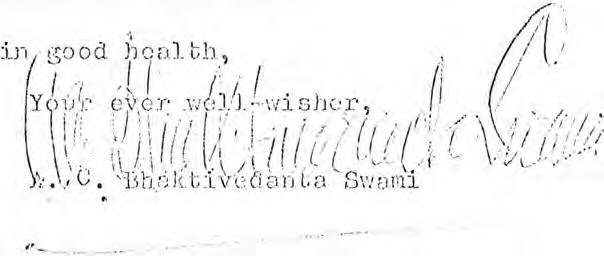 in good health,
Your ever well-wisher,
A. C. Bhaktivedanta Swami
A. C. Bhaktivedanta Swami